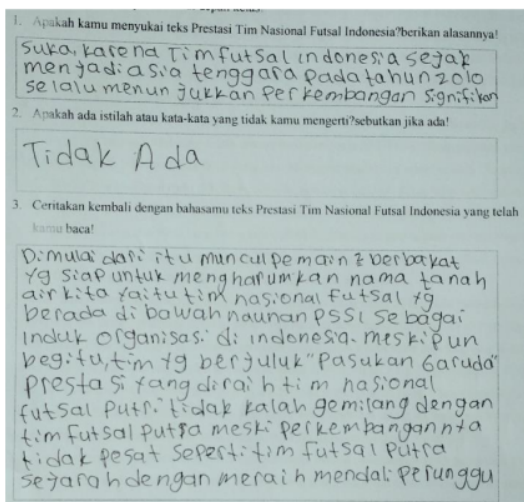 1. Apakah kamu menyukai teks Prestasi Tim Nasional Futsal Indonesia?berikan alasannya!
Suka, karena Tim futsal indonesia sejak
menjadi asia tenggara pada tahun 2010
selalu menunjukkan perkembangan signifikan
2. Apakah ada istilah atau kata-kata yang tidak kamu mengerti?sebutkan jika ada!
Tidak Ada
3. Ceritakan kembali dengan bahasamu teks Prestasi Tim Nasional Futsal Indonesia yang telah
kamu baca!
Dimulai dari itu muncul pemain2 berbakat
yg siap untuk mengharumkan nama tanah
air kita yaitu tim nasional futsal yg
berada di bawah naunan PSSI sebagai
induk organisasi di indonesia. meskipun
begitu, tim yg berjuluk "pasukan Garuda"
prestasi yang diraih tim nasional
futsal putri tidak kalah gemilang dengan
tim futsal putra meski perkembangannya
tidak pesat seperti tim futsal putra
sejarah dengan meraih mendali perunggu